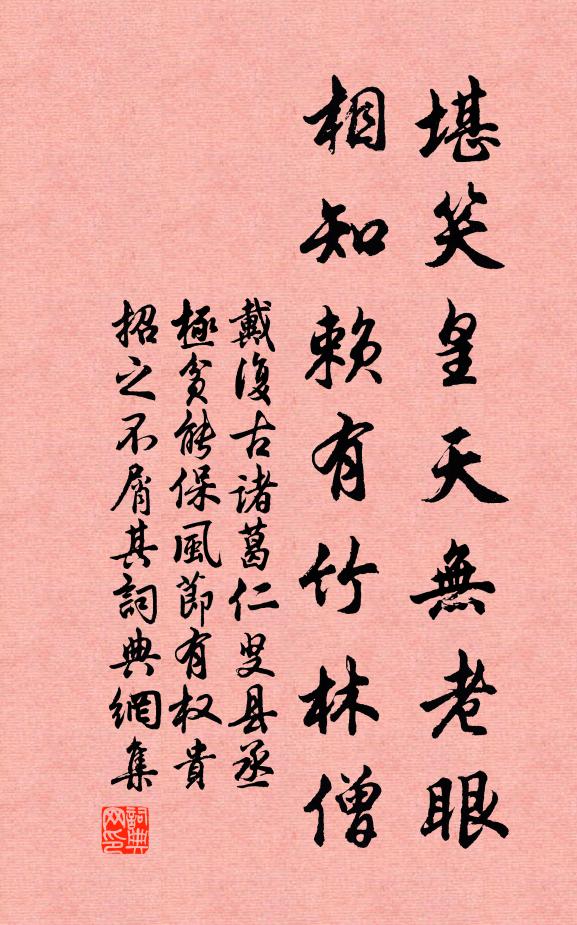 堪笑皇天無老眼
相知賴有竹林僧
戴復古諸葛仁叟县丞
極貧能保風節有权貴
招之不屑其詞典網集
詞典
网印